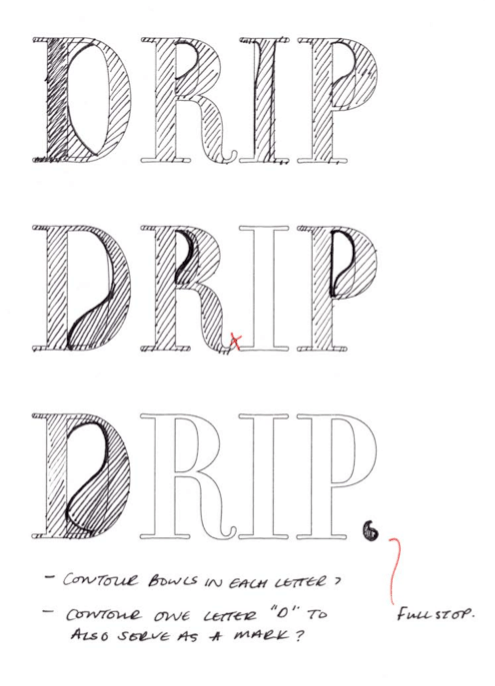 DRIP
DRIP
X
DRIP
- CONTOUR BOWLS IN EACH LETTER?
- CONTOUR ONE LETTER "D" TO
ALSO SERVE AS A MARK?
FULLSTOP.